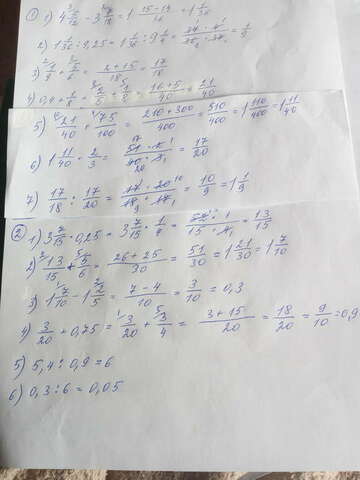 ① 1) 4 5/12 - 3 7/18 = 1 (15-14)/36 = 1 1/36
2) 1 1/36 : 9,25 = 1 1/36 : 9 1/4 = (37·4)/(36·37) = 1/9
3) 1/9 + 5/6 = (2+15)/18 = 17/18
4) 0,4 + 1/8 = 2/5 + 1/8 = (16+5)/40 = 21/40
5) 21/40 + 75/100 = (210+300)/400 = 510/400 = 1 110/400 = 1 11/40
6) 1 11/40 · 2/3 = 17/20
7) 17/18 : 17/20 = (17·20)/(18·17) = 10/9 = 1 1/9
② 1) 3 7/15 · 0,25 = 3 7/15 · 1/4 = (52·1)/(15·4) = 13/15
2) 13/15 + 5/6 = (26+25)/30 = 51/30 = 1 21/30 = 1 7/10
3) 1 7/10 - 1 2/5 = (7-4)/10 = 3/10 = 0,3
4) 3/20 + 0,75 = 3/20 + 3/4 = (3+15)/20 = 18/20 = 9/10 = 0,9
5) 5,4 : 0,9 = 6
6) 0,3 : 6 = 0,05